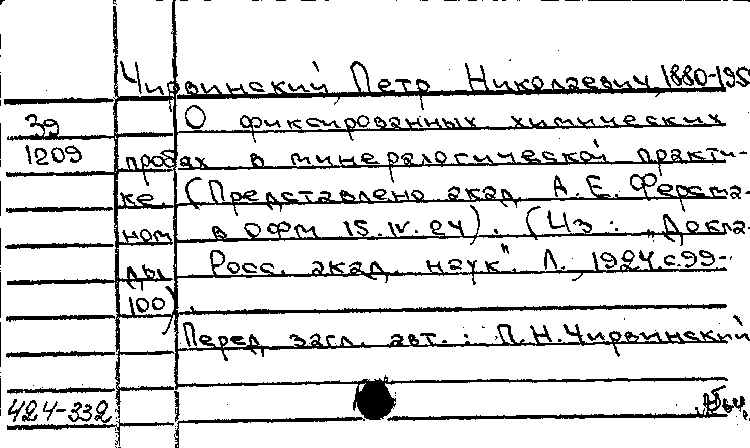 Чирвинский, Петр Николаевич, 1880-195
39 О фиксированных химических
1209 пробах в минералогической практи-
ке. (Представлено акад. А. Е. Ферсма-
ном в ОФМ 15.IV.24). (Из: „Докла-
ды Росс. акад. наук". Л., 1924, с. 99-
100).
Перед загл. авт.: П.Н.Чирвинский
424-332